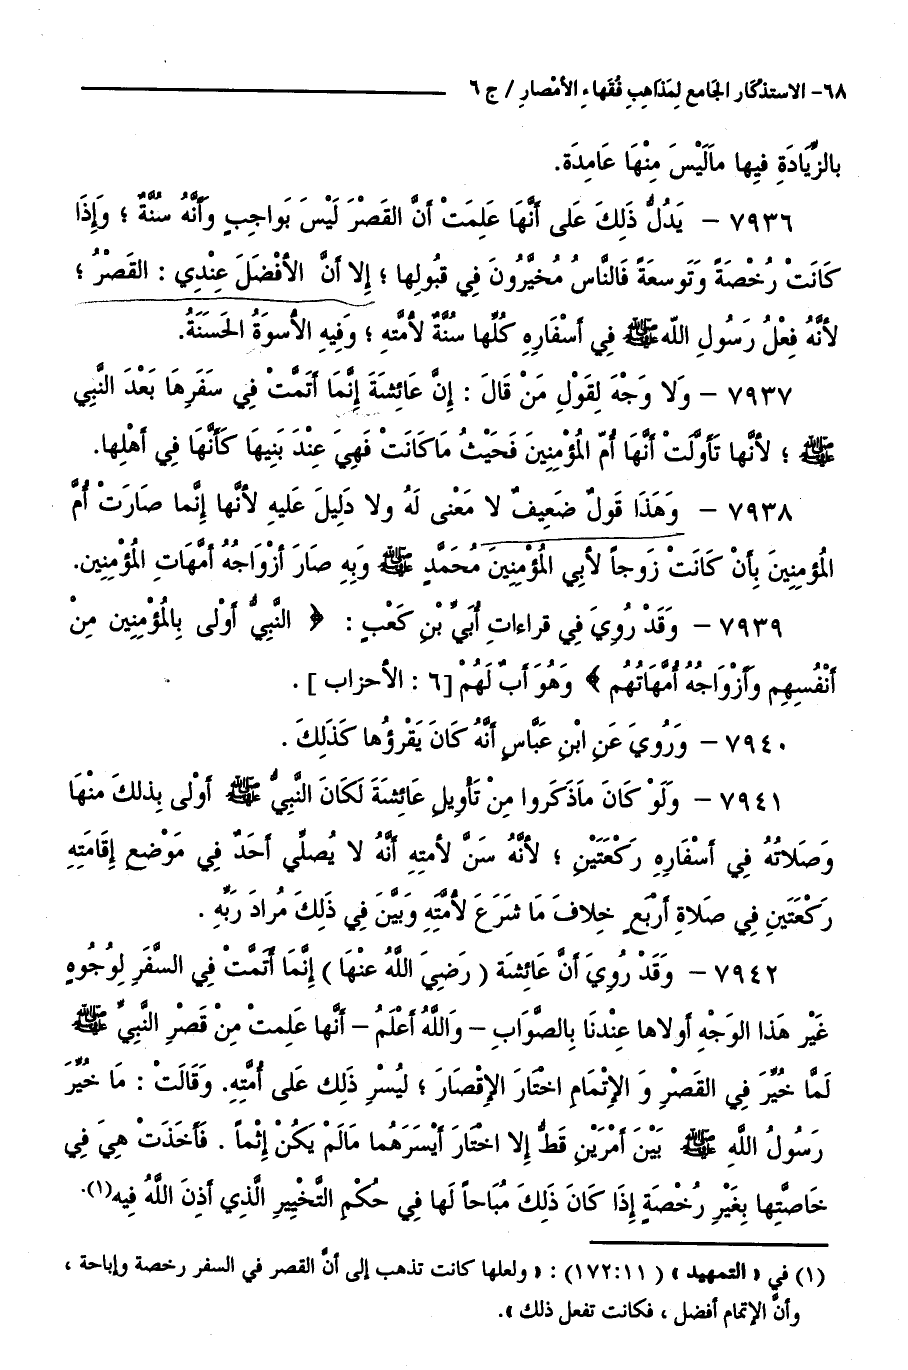 ٦٨- الاستذكار الجامع لِمَذَاهِبِ فُقَهاءِ الأمْصارِ / ج ٦
بالزِّيَادَةِ فِيها مالَيْسَ مِنْهَا عَامِدَة.
٧٩٣٦ – يَدُلُّ ذَلِكَ عَلى أنَّهَا عَلِمَتْ أنَّ القَصْرَ لَيْسَ بَواجِبٍ وَأنَّهُ سُنَّةٌ ؛ وَإِذَا
كَانَتْ رُخْصَةً وَتَوسعَةً فَالنَّاسُ مُخيَّرُونَ فِي قبُولِها ؛ إِلا أنَّ الأفْضَلَ عِنْدِي : القَصْرُ ؛
لأنَّهُ فِعْلُ رَسُولِ اللّه ﷺ فِي أسْفَارِهِ كُلِّها سُنَّةٌ لأمَّتهِ ؛ وَفِيهِ الأسوَةُ الحَسَنَةُ.
٧٩٣٧ – وَلا وَجْهَ لِقَوْلِ مَنْ قَالَ : إِنَّ عَائِشَةَ إِنَّمَا أتَمَّتْ فِي سَفَرِهَا بَعْدَ النَّبِي
ﷺ ؛ لأنَّها تَأوَّلَتْ أنَّهَا أُمّ المُؤْمِنِينَ فَحَيْثُ مَا كَانَتْ فَهِيَ عِنْدَ بَنِيهَا كَأنَّهَا فِي أهْلِها.
٧٩٣٨ – وَهَذَا قَولٌ ضَعِيفٌ لا مَعْنى لَهُ ولا دَلِيلَ عَليهِ لأنَّها إِنَّما صارَتْ أُمَّ
المُؤمِنِينَ بِأنْ كَانَتْ زَوجاً لأبِي المُؤْمِنِينَ مُحَمَّدٍ ﷺ وَبِهِ صَارَ أزْوَاجُهُ أمَّهَاتِ المُؤْمِنِين.
٧٩٣٩ – وَقَدْ رُوِيَ فِي قراءاتِ أُبَيِّ بْنِ كَعْبٍ : ﴿ النَّبِيُّ أوْلى بِالمُؤْمِنِين مِنْ
أنْفُسِهِم وَأزْوَاجُهُ أُمَّهَاتُهُم ﴾ وَهُوَ أبٌ لَهُمْ [ ٦ : الأحزاب ] .
٧٩٤٠ – وَرُوِيَ عَنِ ابْنِ عَبَّاسٍ أنَّهُ كَانَ يَقْرؤُها كَذَلِكَ .
٧٩٤١ – وَلَوْ كَانَ مَاذَكَرُوا مِنْ تَأوِيلِ عَائِشَةَ لَكَانَ النَّبِيُّ ﷺ أوْلى بِذلكَ منْهَا
وَصَلاتُهُ فِي أسْفَارِهِ رَكْعَتَيْنِ ؛ لأنَّهُ سَنَّ لأمتِهِ أنَّهُ لا يُصلِّي أحَدٌ فِي مَوْضعِ إِقَامَتِهِ
رَكْعَتَينِ فِي صَلاةِ أرْبَعٍ خِلافَ مَا شرَعَ لأمَّتِهِ وَبيَّنَ فِي ذَلكَ مُرادَ رَبِّهِ .
٧٩٤٢ – وَقَدْ رُوِيَ أنَّ عَائِشَة ( رَضِيَ اللَّهُ عنْهَا ) إِنَّمَا أتَمَّتْ فِي السَّفَرِ لِوُجُوهٍ
غَيْر هَذا الوَجْهِ أولاها عِنْدنَا بِالصَّوَابِ – وَاللَّهُ أعْلَمُ – أنَّها عَلِمتْ مِنْ قَصْرِ النَّبِيِّ ﷺ
لَمَّا خُيِّرَ فِي القَصْرِ وَ الإِتْمَامِ اختَارَ الإِقْصَارَ ؛ ليُسْرِ ذَلِكَ عَلى أُمَّتِهِ. وَقَالَتْ : مَا خُيِّرَ
رَسُولُ اللَّهِ ﷺ بَيْنَ أمْرَيْنِ قَطُّ إِلا اختَارَ أيْسَرَهُما مَالَمْ يَكُنْ إِثْماً . فَأخَذَتْ هِيَ فِي
خَاصَّتِها بِغَيْرِ رُخْصَةٍ إِذَا كَانَ ذَلِكَ مُبَاحاً لَها فِي حُكْمِ التَّخْيِيرِ الَّذِي أذِنَ اللَّهُ فِيهِ(١).
(١) في « التمهيد » ( ١١:١٧٢) : « ولعلها كانت تذهب إلى أنَّ القصر في السفر رخصة وإباحة ،
وأنَّ الإتمام أفضل ، فكانت تفعل ذلك ».